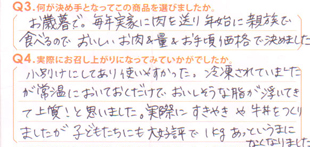 Q3.何が決め手となってこの商品を選びましたか。
お歳暮で。毎年実家に肉を送り年始に親族で
食べるので おいしいお肉&量&お手頃価格で決めました
Q4.実際にお召し上がりになってみていかがでしたか。
小分けにしてあり使いやすかった。冷凍されていました
が常温においておくだけで、おいしそうな脂が浮いてき
て上質!と思いました。実際に すきやき や 牛丼をつくり
ましたが 子どもたちにも大好評で 1kgあっというまに
なくなりました